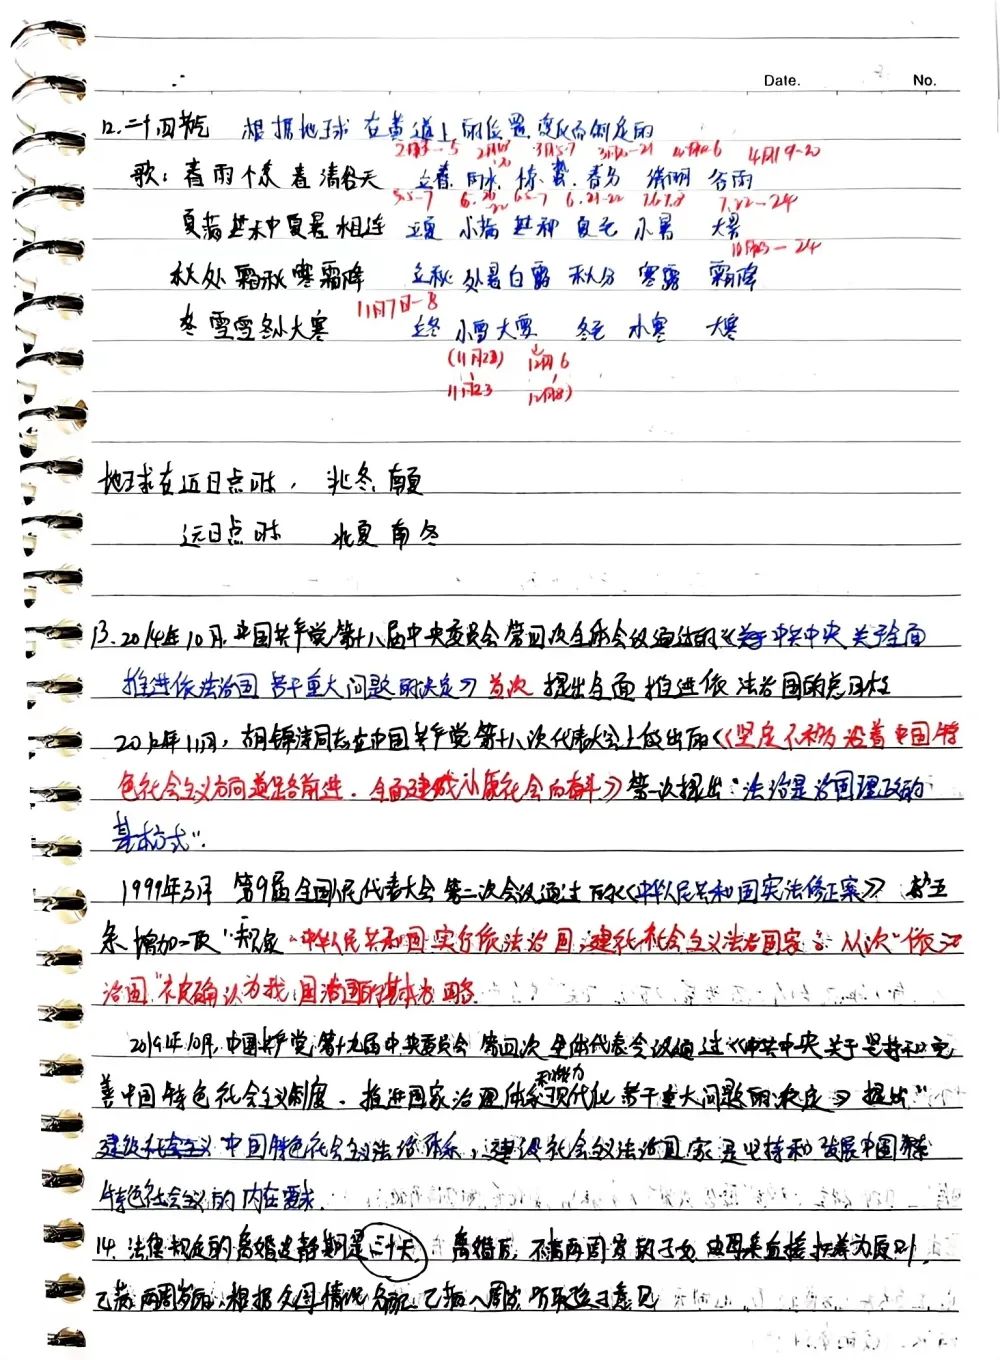 Date. No.
12.二十四节气 根据地球在黄道上的位置变化而制定的
2月3-5 2月18-20 3月5-7 3月20-21 4月4-6 4月19-20
歌：春雨惊春清谷天 立春 雨水 惊蛰 春分 清明 谷雨
5.5-7 6.5-7 6.21-22 7.22-24
夏满芒夏暑相连 立夏 小满 芒种 夏至 小暑 大暑
10月23-24
秋处露秋寒霜降 立秋 处暑 白露 秋分 寒露 霜降
11月7日-8
冬雪雪冬小大寒 立冬 小雪 大雪 冬至 小寒 大寒
(11月22) 12月6
11月23 12月8)
地球在近日点时， 北冬南夏
远日点时 北夏南冬
13.2014年10月,中国共产党第十八届中央委员会第四次全体会议通过的《中共中央关于全面
推进依法治国若干重大问题的决定》首次提出全面推进依法治国的总目标
2012年11月，胡锦涛同志在中国共产党第十八次代表大会上做出的《坚定不移沿着中国特
色社会主义方向道路前进.全面建成小康社会而奋斗》第一次提出：法治是治国理政的
基本方式".
1999年3月 第9届全国人民代表大会第二次会议通过的《中华人民共和国宪法修正案》 第五
条增加一项"规定"中华人民共和国实行依法治国,建设社会主义法治国家。从次"依法
治国"被确认为我国治国的基本方略
2019年10月,中国共产党第十九届中央委员会第四次全体代表会议通过《中共中央关于坚持和完
善中国特色社会主义制度、推进国家治理体系和能力现代化若干重大问题的决定》提出"
建设社会主义中国特色社会主义法治体系,建设社会主义法治国家是坚持和发展中国
特色社会主义的内在要求
14.法律规定的离婚冷静期是三十天 离婚后,不满两周岁的子女,由母亲直接抚养为原则,
已满两周岁的,根据父母情况
已满八周岁 听取孩子意见